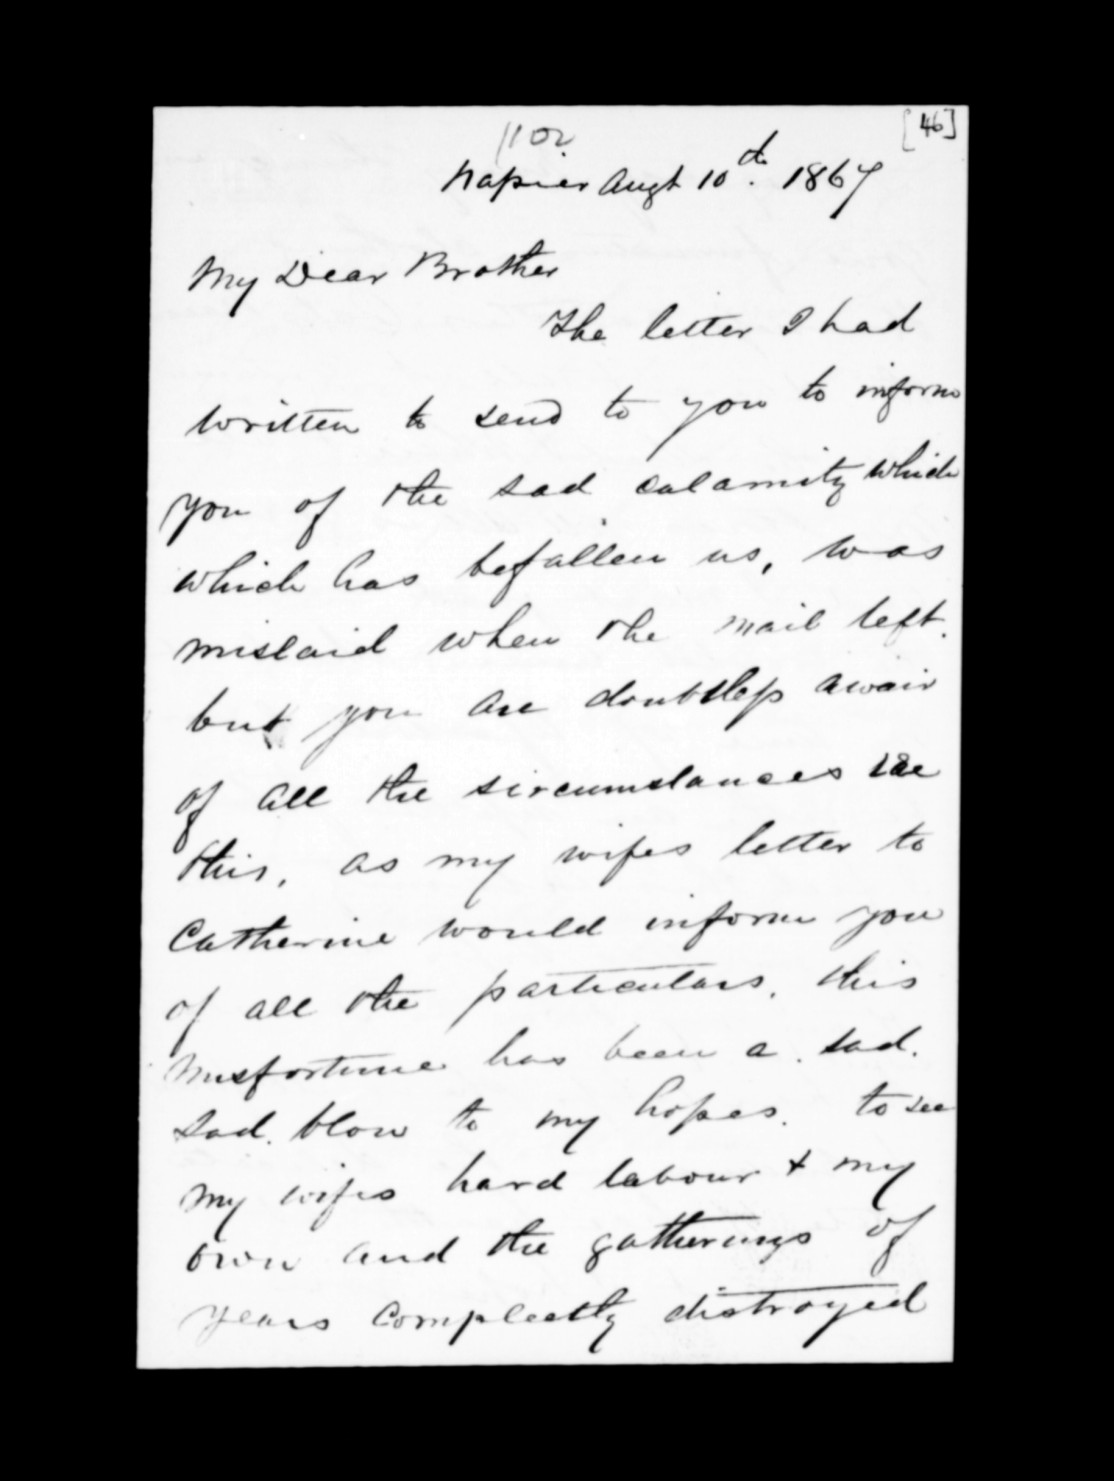 [46]
1102
Napier Augt 10th. 1867
My Dear Brother
The letter I had
written to send to you to inform
you of the sad calamity which
which has befallen us, was
mislaid when the mail left.
but you are doubtless awair
of all the sircumstances
this, as my wifes letter to
Catherine would inform you
of all the particulars. this
misfortune has been a. sad.
sad. blow to my hopes. to see
my wifes hard labour & my
own and the gatherings of
years compleetly distroyed